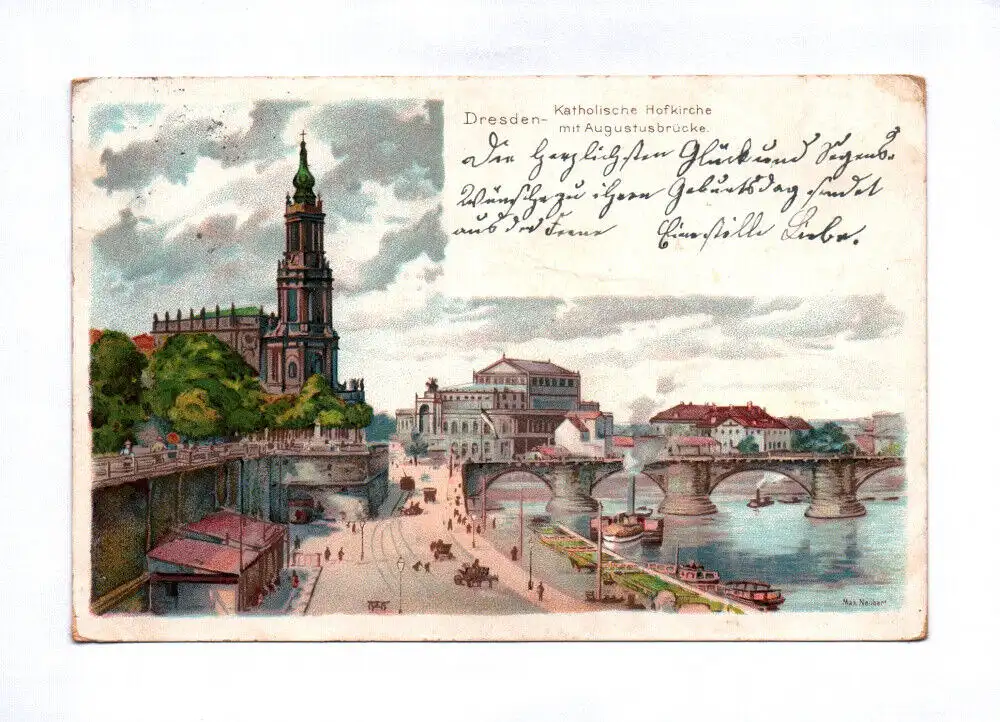 Dresden- Katholische Hofkirche
mit Augustusbrücke.
Die herzlichsten Glück und Segens-
Wünsche zu ihren Geburtsdag sendet
aus der Ferne Eine stille Liebe.
Max Neubert